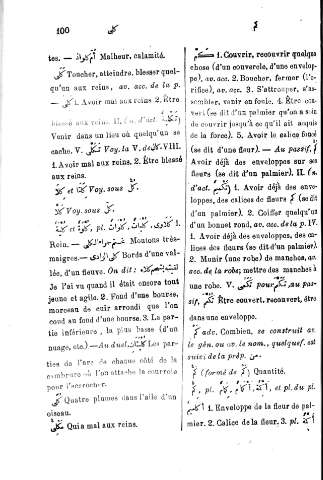 100
كلى
كم
tes. — Malheur, calamité.
كلى Toucher, atteindre, blesser quelqu'un aux reins, av. acc. de la p.
— كلى 1. Avoir mal aux reins 2. Être
blessé aux reins. II. (n. d'act.
Venir dans un lieu où quelqu'un se
cache. V. Voy. la V. de كلى VIII.
1. Avoir mal aux reins. 2. Être blessé
aux reins.
كلا et Voy. sous كلى.
كلا Voy. sous كل.
كلوة et كلية, pl. كلى, كليات, كلاوى 1.
Rein. — غنم حمراء الكلى Moutons très-
maigres. — كلى الوادى Bords d'une val-
lée, d'un fleuve. On dit:
Je l'ai vu quand il était encore tout
jeune et agile. 2. Fond d'une bourse,
morceau de cuir arrondi que l'on
coud au fond d'une bourse. 3. La par-
tie inférieure, la plus basse (d'un
nuage, etc.) — Au duel, Les par-
ties de l'arc de chaque côté de la
cambrure où l'on attache la courroie
pour l'accrocher.
كلى Quatre plumes dans l'aile d'un
oiseau.
Qui a mal aux reins.
كم — 1. Couvrir, recouvrir quelque
chose (d'un couvercle, d'une envelop-
pe), av. acc. 2. Boucher, fermer (l'o-
rifice), av. acc. 3. S'attrouper, s'as-
sembler, venir en foule. 4. Être cou-
vert (se dit d'un palmier qu'on a soin
de couvrir jusqu'à ce qu'il ait acquis
de la force). 5. Avoir le calice foncé
(se dit d'une fleur). — Au passif, كم
Avoir déjà des enveloppes sur ses
fleurs (se dit d'un palmier). II. (n.
d'act. تكميم) 1. Avoir déjà des enve-
loppes, des calices de fleurs كم (se dit
d'un palmier). 2. Coiffer quelqu'un
d'un bonnet rond, av. acc. de la p. IV.
1. Avoir déjà des enveloppes, des ca-
lices des fleurs (se dit d'un palmier).
2. Munir (une robe) de manches, av.
acc. de la robe; mettre des manches à
une robe. V. تكمى pour تكمم, Au pas-
sif, تكمم Être couvert, recouvert, être
dans une enveloppe.
كم adv. Combien, se construit av.
le gén. ou av. le nom., quelquef. est
suivi de la prép. من.
كم (formé de كم) Quantité.
كم, pl. et pl. du pl.
1. Enveloppe de la fleur de pal-
mier. 2. Calice de la fleur. 3. pl.